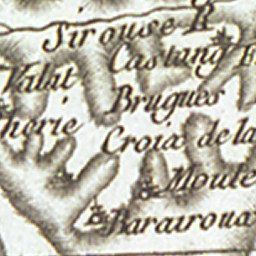 Sirouse R
Castang
Valat
Brugues
Croix de la
Moule
Barairoux